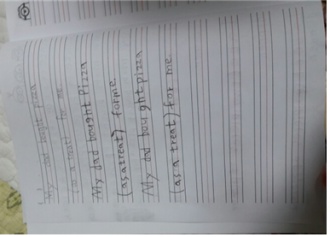 My dad bought pizza
(as a treat) for me
My dad bought Pizza
(as a treat) for me
My dad bought pizza
(as a treat) for me